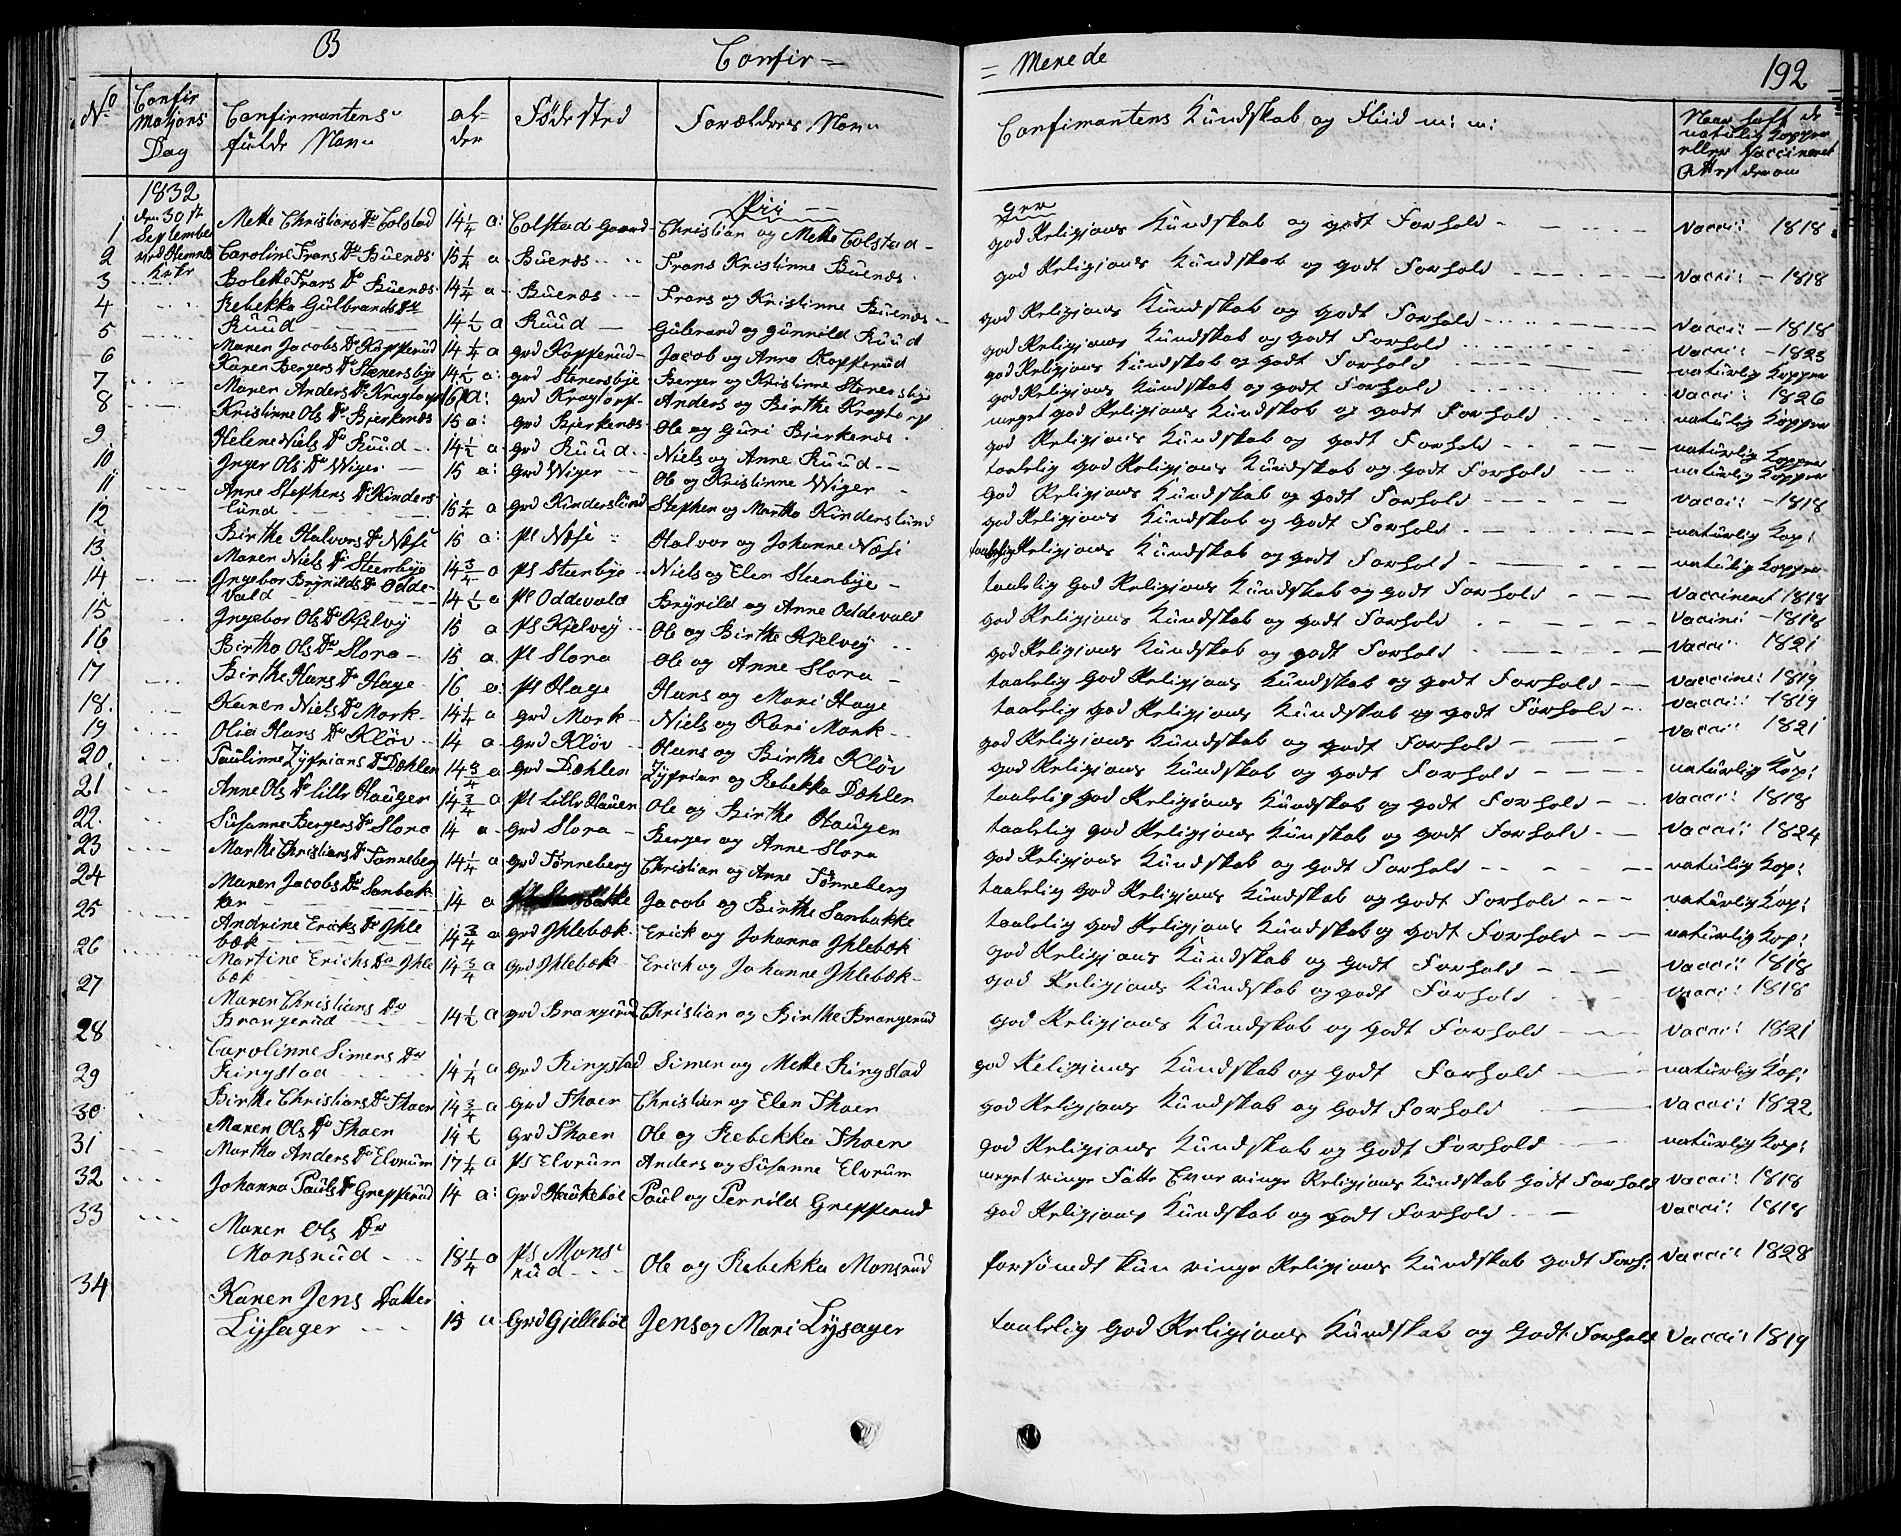 B Confir = = Merede 192
No Confir Matjons Dag Confirmantens fulde Navn al- der Födested Forældres Navn Confirmantens Kündskab og Fliid m: m: Naar haft de natulig Kopper eller Vaccineret Attest derom
1832 den 30te September ved Hemnes Kirke
Pii ger
1 Mette Christians Dr Colstad 14 1/4 a: Colstad Gaard Christian og Mette Colstad god Religjons Kündskab og godt Forhold vacci: 1818
2 Caroline Frans Dr Büenæs 15 1/4 a Büenæs Frans Kristinne Büenæs god Religjons Kündskab og godt Forhold vacci: 1818
3 Bolette Frans Dr Büenæs 14 1/4 a Büenæs Frans og Kristinne Büenæs god Religjons Kündskab og godt Forhold vacci: 1818
4 Rebekka Gülbrands Dr Rüüd 14 1/2 a Rüüd Gülbrand og Günnild Rüüd god Religjons Kündskab og godt Forhold vacci: 1823
5 Maren Jacobs Dr Kopperüd 14 1/4 a grd Kopperüd Jacob og Anna Kopperüd god Religjons Kündskab og godt Forhold natürlig Kopper
6 Karen Bergers Dr Stenersbye 14 1/2 a: grd Stenersbye Berger og Kristinne Stenersbye god Religjons Kündskab og godt Forhold vacci: 1826
7 Maren Anders Dr Kragtorp 16 a: grd Kragtorp Anders og Birthe Kragtorp meget god Religjons Kündskab og godt Forhold natürlig Kopper
8 Kristinne Ols Dr Bjerkenæs 15 a: grd Bjerkenæs Ole og Güri Bjerkenæs god Religjons Kündskab og godt Forhold natürlig Kopper
9 Helene Niels Dr Rüüd 14 1/2 a grd Rüüd Niels og Anne Rüüd taalelig god Religjons Kündskab og godt Forhold natürlig Kopper
10 Inger Ols Dr Wiger 15 a: grd Wiger Ole og Kristinne Wiger god Religjons Kündskab og godt Forhold vacci: 1818
11 Anne Stephens Dr Kinderslund 15 1/4 a grd Kinderslund Stephen og Martha Kinderslünd god Religjons Kündskab og godt Forhold natürlig Kop:
12 Birthe Halvors Dr Næsi 15 a: Pl Næsi Halvor og Johanne Næsi taalelig Religjons Kündskab og godt Forhold natülig Kopper
13 Maren Niels Dr Steenbye 14 3/4 a Pl Steenbye Niels og Elen Steenbye taalelig god Religjons Kündskab og godt Forhold Vaccineret 1818
14 Ingebor Brynilds Dr Oddevald 14 1/2 a Pl Oddevald Brynild og Anne Oddevald god Religjons Kündskab og godt Forhold Vacine: 1818
15 Ingebor Ols Dr Kjelvey 15 a Pl Kjelvey Ole og Birthe Kjelvey god Religjons Kündskab og godt Forhold vacci: 1821
16 Birtha Ols Dr Slora 15 a. Pl Slora Ole og Anne Slora taalelig god Religjons Kündskab og godt Forhold vaccine: 1819
17 Birthe Hans Dr Hage 16 a: Pl Hage Hans og Mari Hage taalelig god Religjons Kündskab og godt Forhold vacci: 1819
18. Karen Niels Dr Mork 14 1/4 a grd Mork Niels og Kari Mork god Religjons Kündskab og godt Forhold vacci: 1821
19 Olia Hans Dr Kløv 14 a grd Kløv Hans og Birthe Kløv god Religjons Kündskab og godt Forhold natürlig Kop:
20. Paulinne Zyprians Dr Dæhlen 14 3/4 a grd Dæhlen Zyprian og Rebekka Dæhlen taalelig god Religjons Kündskab og godt Forhold vacci: 1818
21 Anne Ols Dr Lille Haugen 14 3/4 a Pl Lille Hauen Ole og Birthe Haugen taalelig god Religjons Kündskab og godt Forhold vacci: 1824
22. Süsanne Bergers Dr Slora 14 a grd Slora Berger og Anne Slora god Religjons Kündskab og godt Forhold natürlig Kop:
23 Marthe Christians Dr Tønneberg 14 1/4 a grd Tønneberg Christian og Anne Tønneberg taalelig god Religjons Kündskab og godt Forhold natürlig Kop:
24 Maren Jacobs Dr Sanbakken 14 a Pl Sanbakke Jacob og Birthe Sanbakke taalelig god Religjons Kündskab og godt Forhold natürlig Kop:
25 Andrine Ericks Dr Ihlebæk 14 3/4 a grd Ihlebæk Erick og Johanna Ihlebæk god Religjons Kündskab og godt Forhold vacci: 1818
26 Martine Erichs Dr Ihlebæk 14 3/4 a grd Ihlebæk Erick og Johanne Ihlebæk god Religjons Kündskab og godt Forhold vacci: 1818
27 Maren Christians Dr Brangerüd 14 1/2 a grd Brangerüd Christian og Birthe Brangerüd god Religjons Kündskab og godt Forhold vacci: 1821
28 Carolinne Simens Dr Ringstad 14 1/4 a grd Ringstad Simen og Mette Ringstad god Religjons Kündskab og godt Forhold natürlig Kop:
29 Birthe Christians Dr Thoen 14 3/4 a grd Thoen Christian og Elen Thoen god Religjons Kündskab og godt Forhold vacci: 1822
30 Maren Ols Dr Thoen 14 1/2 grd Thoen Ole og Rebekka Thoen god Religjons Kündskab og godt Forhold natürlig Kop:
31 Martha Anders Dr Elvrüm 17 1/4 a Pl Elvrüm Anders og Süsanne Elvrüm meget ringe Fatte Evne ringe Religjons Kündskab godt Forhold vacci: 1818
32 Johanna Pauls Dr Grepperüd 14 a: grd Haukeböl Paul og Pernild Grepperud god Religjons Kündskab og godt Forhold vacci: 1818
33 Maren Ols Dr Monsrüd 18 1/4 a Pl Monsrüd Ole og Rebekka Monsrüd forsömdt kün ringe Religjons Kündskab godt Forh: vacci: 1828
34 Karen Jens Datter Lysager 15 a: Grd Gjelleböl Jens og Mari Lysager taalelig god Religjons Kündskab og Godt Forhold vacci: 1819